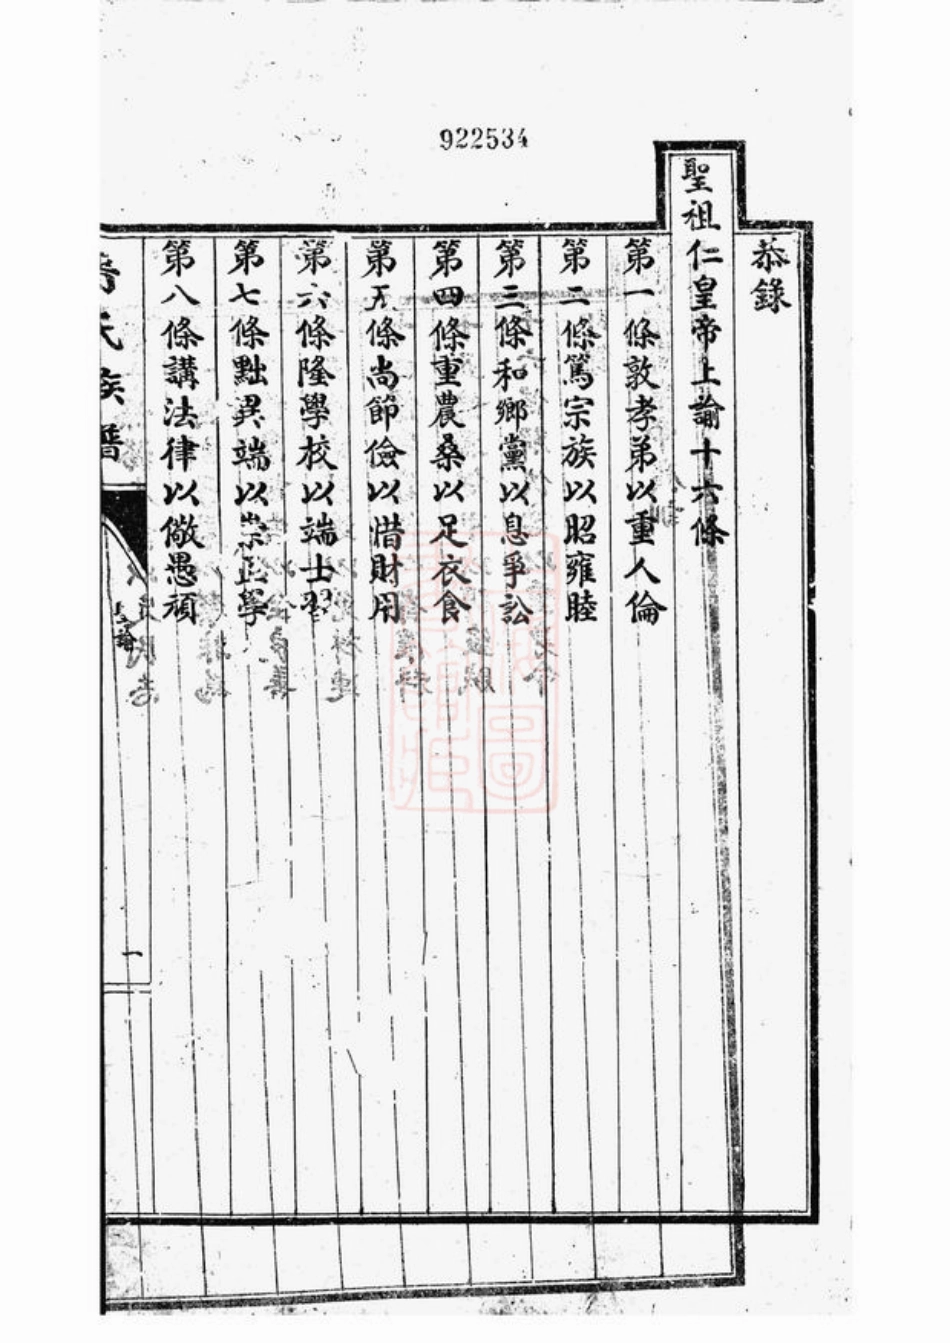 922534
恭錄
聖祖仁皇帝上諭十六條
第一條敦孝弟以重人倫
第二條篤宗族以昭雍睦
第三條和鄉黨以息爭訟
第四條重農桑以足衣食
第五條尚節儉以惜財用
第六條隆學校以端士習
第七條黜異端以崇正學
第八條講法律以儆愚頑
氏族譜
上諭
一